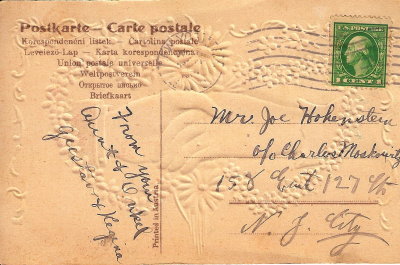 Postkarte – Carte postale
Korespondenční listek. – Cartolina postale
Levelező-Lap – Karta korespondencyjna
Union postale universelle
Weltpostverein
Открытое письмо
Briefkaart
U.S. POSTAGE
1 CENT 1
From your
Aunt & Onkel
Gustav & Regina
Printed in Austria.
Mr. Joe Hohenstein
c/o Charles Moskowitz
158 East 127 St
N. Y. City